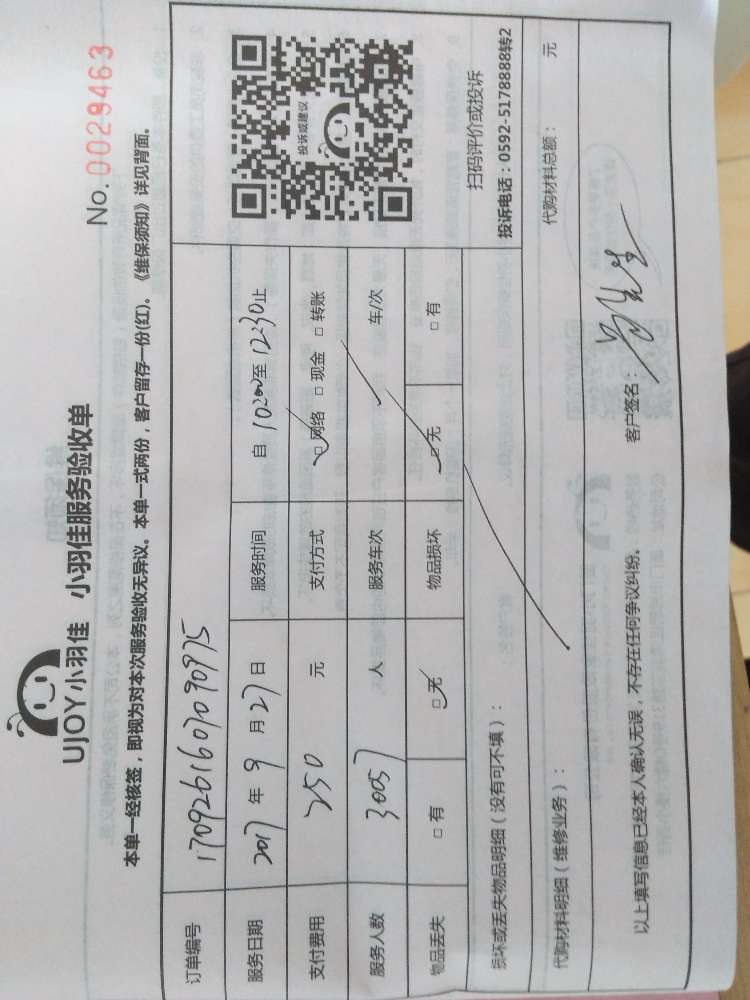 UJOY小羽佳 小羽佳服务验收单
No. 0029463
本单一经核签，即视为对本次服务验收无异议。本单一式两份，客户留存一份(红)。《维保须知》详见背面。
订单编号 170926160709097975
服务日期 2017 年 9 月 27 日 服务时间 自 10:00 至 12:30 止
支付费用 250 元 支付方式 □ 网络 □ 现金 □ 转账
服务人数 人 服务车次 车/次
物品丢失 □ 有 □ 无 物品损坏 □ 无 □ 有
投诉或建议
扫码评价或投诉
投诉电话：0592-5178888转2
损坏或丢失物品明细（没有可不填）：
代购材料明细（维修业务）： 代购材料总额： 元
以上填写信息已经本人确认无误，不存在任何争议纠纷。 客户签名：